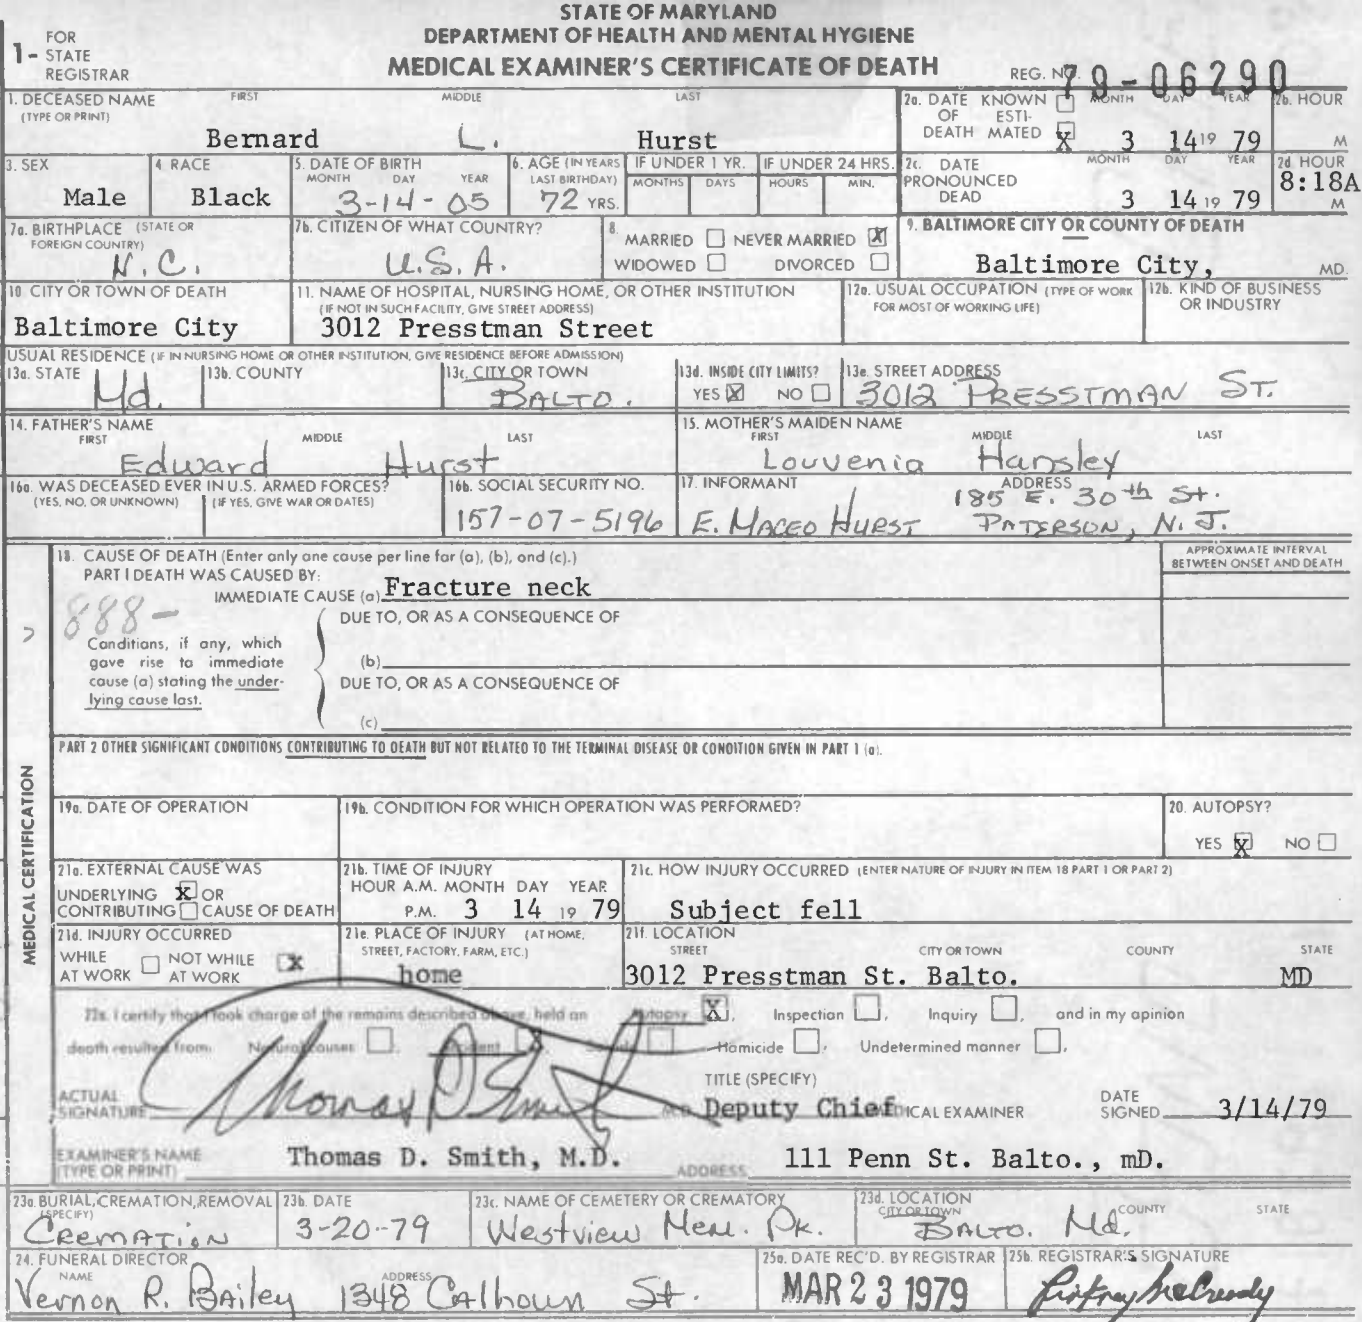 STATE OF MARYLAND
DEPARTMENT OF HEALTH AND MENTAL HYGIENE
MEDICAL EXAMINER'S CERTIFICATE OF DEATH
1- FOR STATE REGISTRAR
REG. NO. 79-06290
1. DECEASED NAME (TYPE OR PRINT) FIRST MIDDLE LAST
Bernard L. Hurst
2a. DATE OF DEATH KNOWN ESTIMATED X MONTH DAY YEAR
3 14 19 79
2b. HOUR M
3. SEX
Male
4. RACE
Black
5. DATE OF BIRTH MONTH DAY YEAR
3-14-05
6. AGE (IN YEARS LAST BIRTHDAY)
72 YRS.
IF UNDER 1 YR. MONTHS DAYS
IF UNDER 24 HRS. HOURS MIN.
2c. DATE PRONOUNCED DEAD MONTH DAY YEAR
3 14 19 79
2d. HOUR
8:18A M
7a. BIRTHPLACE (STATE OR FOREIGN COUNTRY)
N.C.
7b. CITIZEN OF WHAT COUNTRY?
U.S.A.
8. MARRIED NEVER MARRIED X
WIDOWED DIVORCED
9. BALTIMORE CITY OR COUNTY OF DEATH
Baltimore City, MD.
10. CITY OR TOWN OF DEATH
Baltimore City
11. NAME OF HOSPITAL, NURSING HOME, OR OTHER INSTITUTION
(IF NOT IN SUCH FACILITY, GIVE STREET ADDRESS)
3012 Presstman Street
12a. USUAL OCCUPATION (TYPE OF WORK FOR MOST OF WORKING LIFE)
12b. KIND OF BUSINESS OR INDUSTRY
USUAL RESIDENCE (IF IN NURSING HOME OR OTHER INSTITUTION, GIVE RESIDENCE BEFORE ADMISSION)
13a. STATE
Md.
13b. COUNTY
13c. CITY OR TOWN
BALTO.
13d. INSIDE CITY LIMITS?
YES X NO
13e. STREET ADDRESS
3012 PRESSTMAN ST.
14. FATHER'S NAME FIRST MIDDLE LAST
Edward Hurst
15. MOTHER'S MAIDEN NAME FIRST MIDDLE LAST
Louvenia Hansley
16a. WAS DECEASED EVER IN U.S. ARMED FORCES?
(YES, NO, OR UNKNOWN) (IF YES, GIVE WAR OR DATES)
16b. SOCIAL SECURITY NO.
157-07-5196
17. INFORMANT ADDRESS
E. MACEO HURST 185 E. 30th St.
PATERSON, N.J.
MEDICAL CERTIFICATION
18. CAUSE OF DEATH (Enter only one cause per line for (a), (b), and (c).)
APPROXIMATE INTERVAL BETWEEN ONSET AND DEATH
PART I DEATH WAS CAUSED BY:
IMMEDIATE CAUSE (a) Fracture neck
888-
DUE TO, OR AS A CONSEQUENCE OF
Conditions, if any, which gave rise to immediate cause (a) stating the underlying cause last.
(b)
DUE TO, OR AS A CONSEQUENCE OF
(c)
PART 2 OTHER SIGNIFICANT CONDITIONS CONTRIBUTING TO DEATH BUT NOT RELATED TO THE TERMINAL DISEASE OR CONDITION GIVEN IN PART 1 (a).
19a. DATE OF OPERATION
19b. CONDITION FOR WHICH OPERATION WAS PERFORMED?
20. AUTOPSY?
YES X NO
21a. EXTERNAL CAUSE WAS
UNDERLYING X OR
CONTRIBUTING CAUSE OF DEATH
21b. TIME OF INJURY
HOUR A.M. MONTH DAY YEAR
P.M. 3 14 19 79
21c. HOW INJURY OCCURRED (ENTER NATURE OF INJURY IN ITEM 18 PART 1 OR PART 2)
Subject fell
21d. INJURY OCCURRED
WHILE AT WORK NOT WHILE AT WORK X
21e. PLACE OF INJURY (AT HOME, STREET, FACTORY, FARM, ETC.)
home
21f. LOCATION
STREET CITY OR TOWN COUNTY STATE
3012 Presstman St. Balto. MD
22a. I certify that I took charge of the remains described above, held an Autopsy X, Inspection, Inquiry, and in my opinion
death resulted from: Natural causes, Accident X, Homicide, Undetermined manner.
ACTUAL SIGNATURE Thomas D Smith M.D.
TITLE (SPECIFY)
Deputy Chief MEDICAL EXAMINER
DATE SIGNED 3/14/79
EXAMINER'S NAME (TYPE OR PRINT) Thomas D. Smith, M.D.
ADDRESS 111 Penn St. Balto., mD.
23a. BURIAL, CREMATION, REMOVAL (SPECIFY)
CREMATION
23b. DATE
3-20-79
23c. NAME OF CEMETERY OR CREMATORY
Westview Mem. Pk.
23d. LOCATION CITY OR TOWN COUNTY STATE
BALTO. Md.
24. FUNERAL DIRECTOR NAME ADDRESS
Vernon R. Bailey 1348 Calhoun St.
25a. DATE REC'D. BY REGISTRAR
MAR 23 1979
25b. REGISTRAR'S SIGNATURE